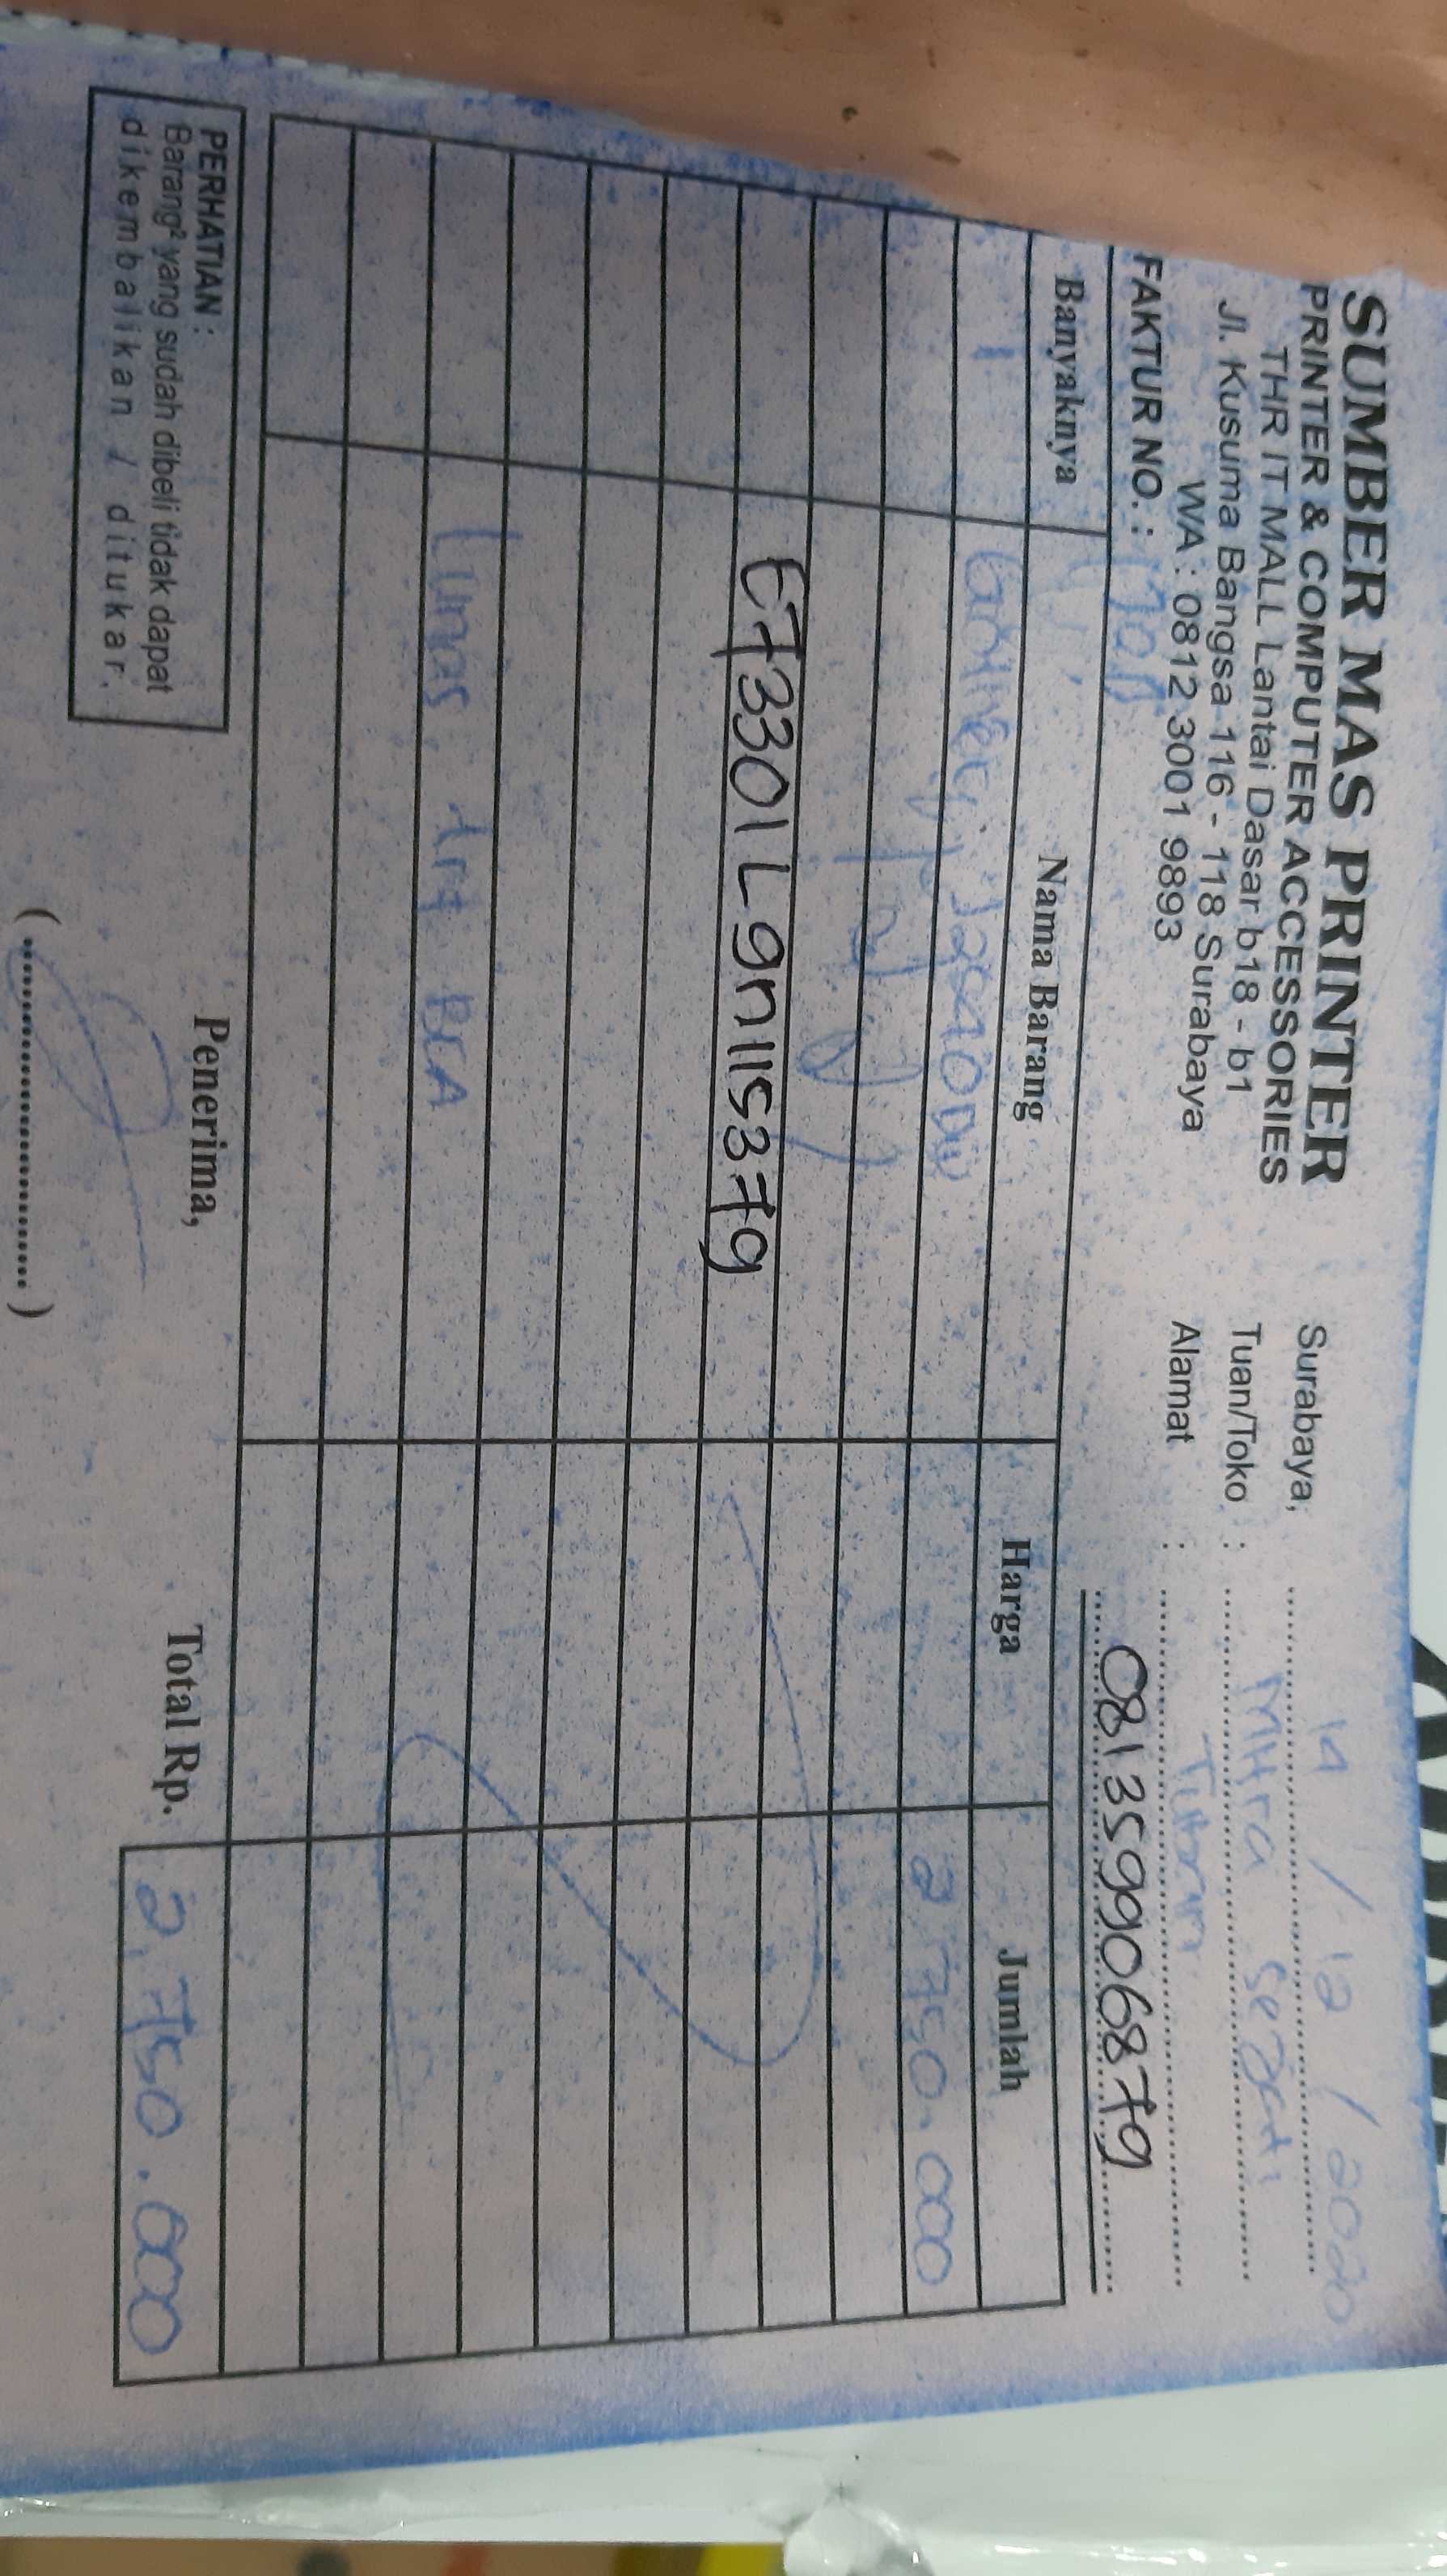 SUMBER MAS PRINTER
PRINTER & COMPUTER ACCESSORIES
THR IT MALL Lantai Dasar b18 - b1
Jl. Kusuma Bangsa 116 - 118 Surabaya
WA : 0812 3001 9893
Surabaya, 14 / 12 / 2020
Tuan/Toko : Mitra Sejati
Alamat : Tuban
081359906879
FAKTUR NO. :
Banyaknya Nama Barang Harga Jumlah
1 Brother J2840DW 2.750.000
E73301L9n115379
Lunas trf BCA
PERHATIAN :
Barang² yang sudah dibeli tidak dapat
dikembalikan / ditukar.
Penerima,
Total Rp. 2.750.000
(....................)